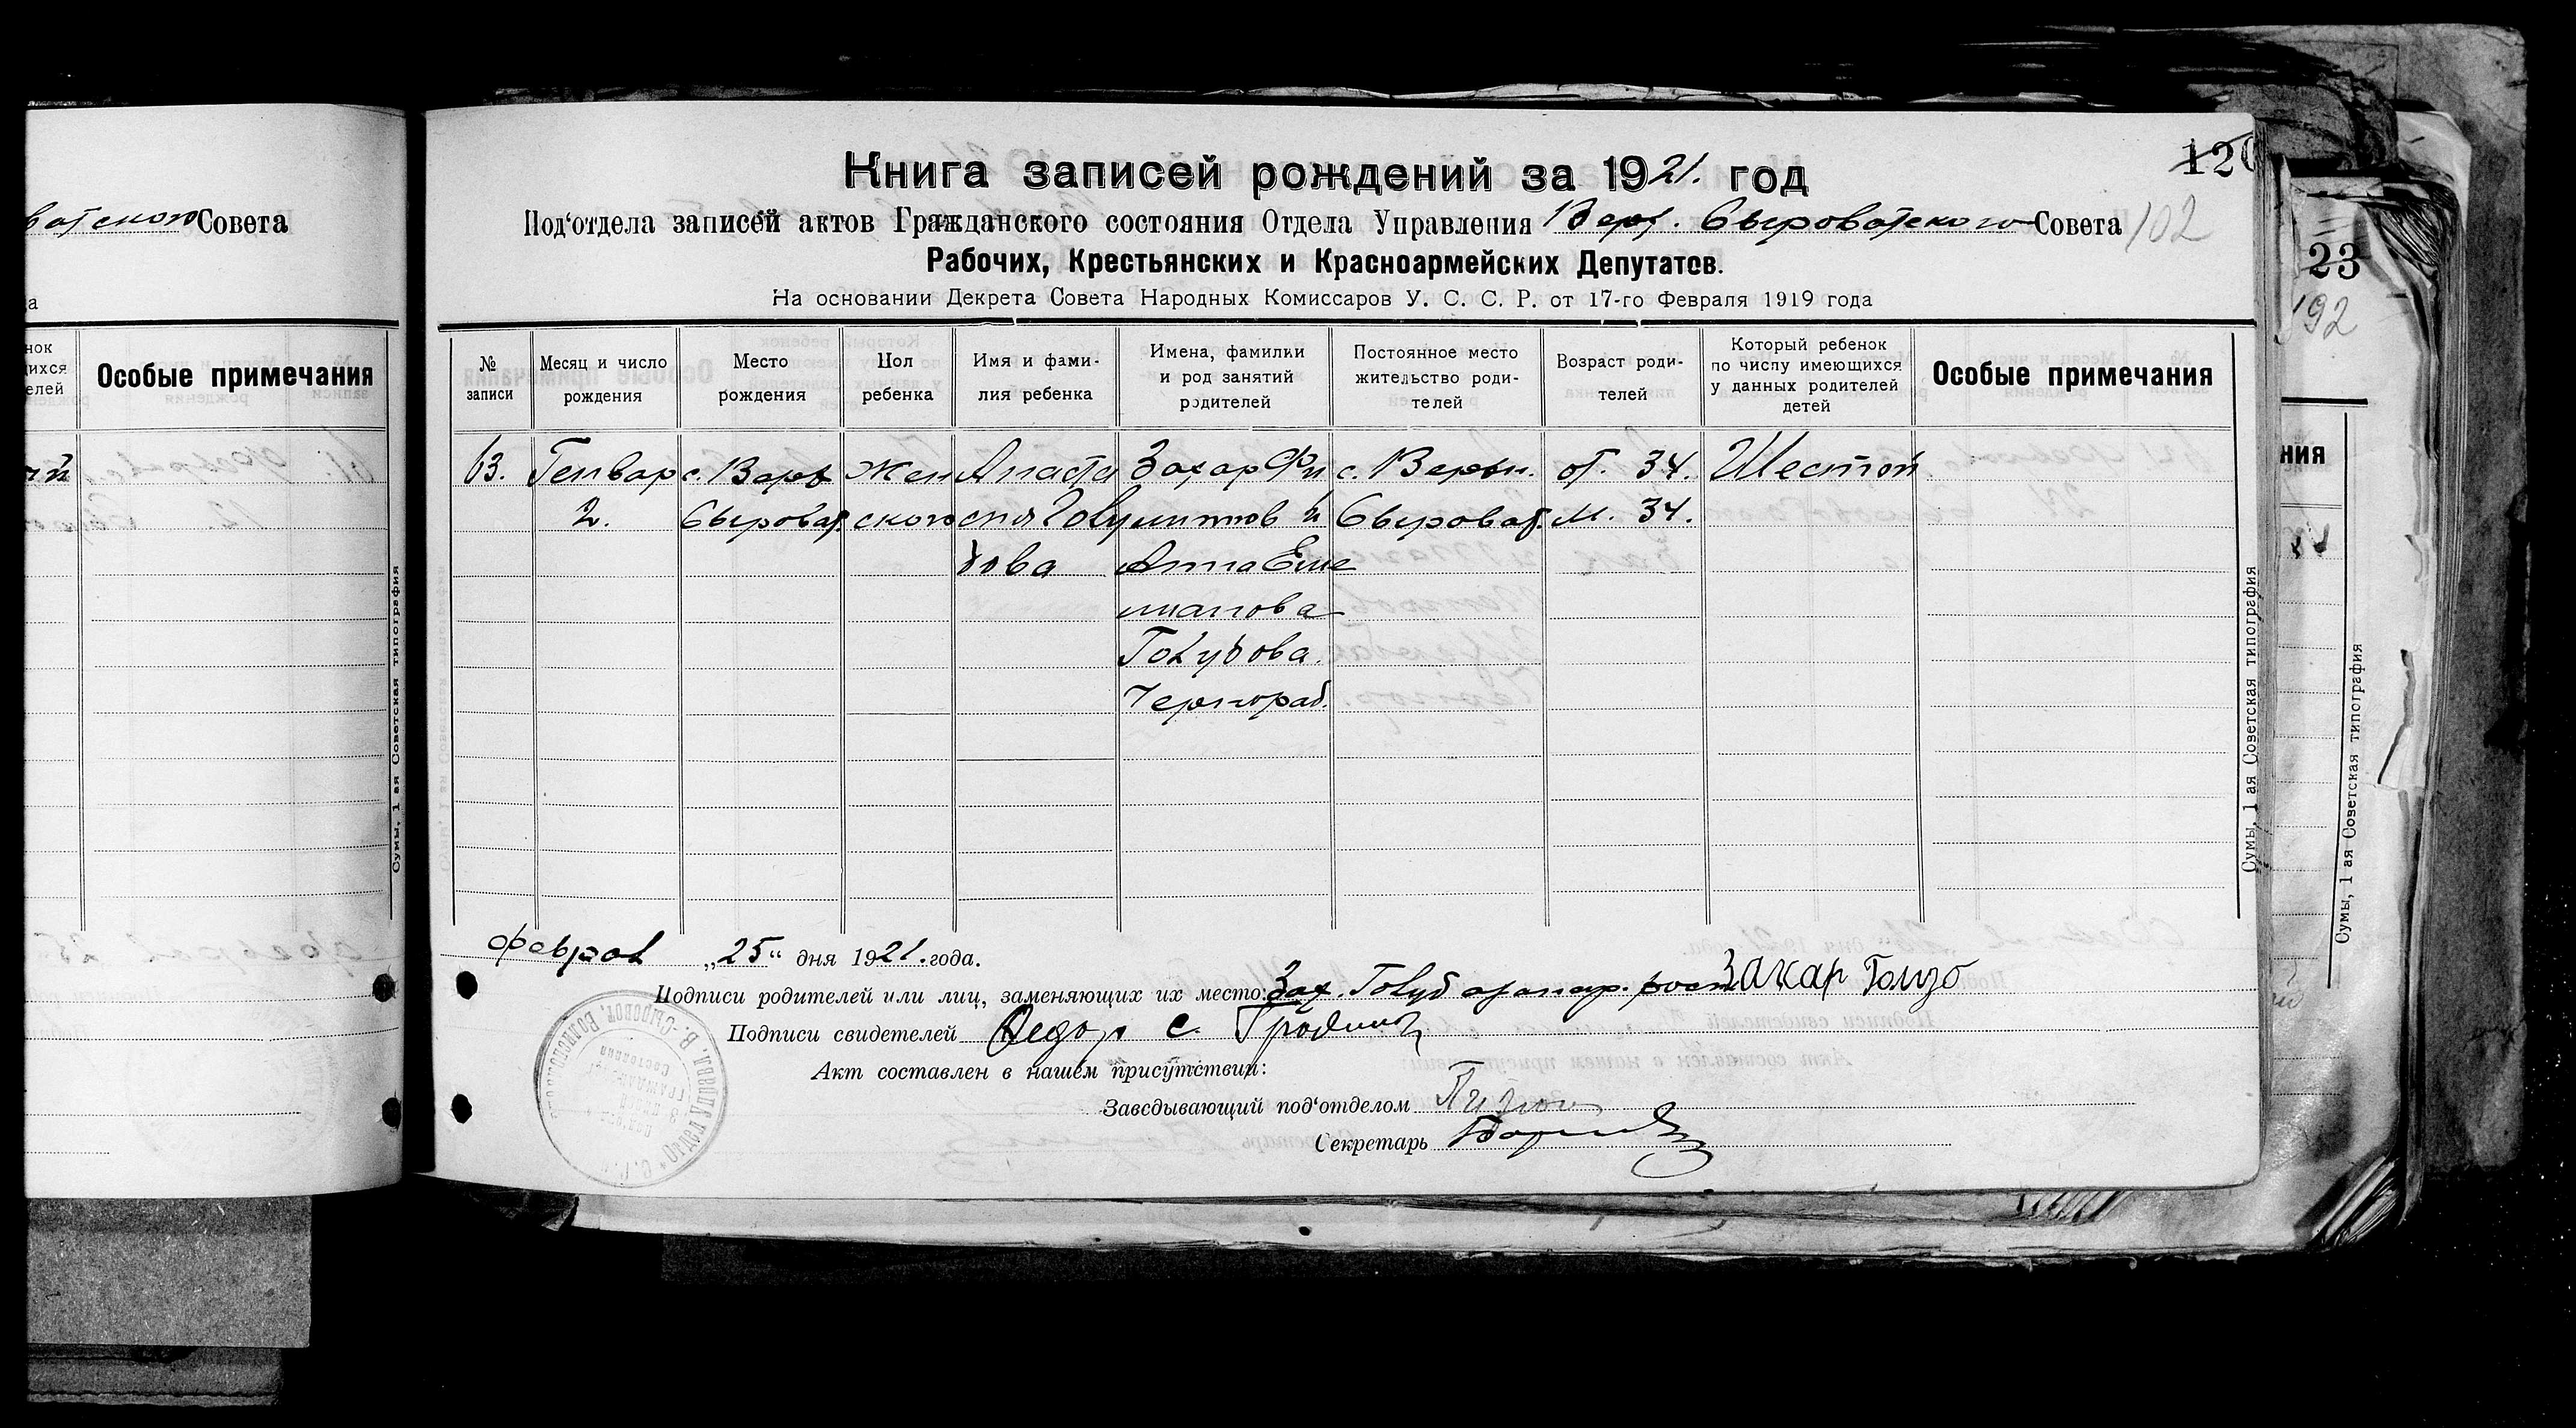 ватского Совета
Особые примечания
Сумы, 1 ая Советская типография
120
102
Книга записей рождений за 1921. год
Под‘отдела записей актов Гражданского состояния Отдела Управления Верх. Сыроватского Совета
Рабочих, Крестьянских и Красноармейских Депутатов.
На основании Декрета Совета Народных Комиссаров У. С. С. Р. от 17-го Февраля 1919 года
№ записи
Месяц и число рождения
Место рождения
Пол ребенка
Имя и фами-
лия ребенка
Имена, фамилии
и род занятий
родителей
Постоянное место
жительство роди-
телей
Возраст роди-
телей
Который ребенок
по числу имеющихся
у данных родителей
детей
Особые примечания
63.
Генвар
2.
с. Верх
Сыроват.
Жен
ского
Анаста
сия Голу
бова
Захар Фи
липпов и
Анна Еме
лианова
Голубова.
Чернораб.
с. Верхн.
Сыроват.
от. 34.
м. 34.
Шестой
Сумы, 1 ая Советская типография
Феврал „25“ дня 1921. года.
Подписи родителей или лиц, заменяющих их место: Зах. Голуб Захар Голуб
Подписи свидетелей Федор С.
Акт составлен в нашем присутствии:
Заведывающий под‘отделом
Секретарь
23
192
ния
Сумы, 1 ая Советская типография